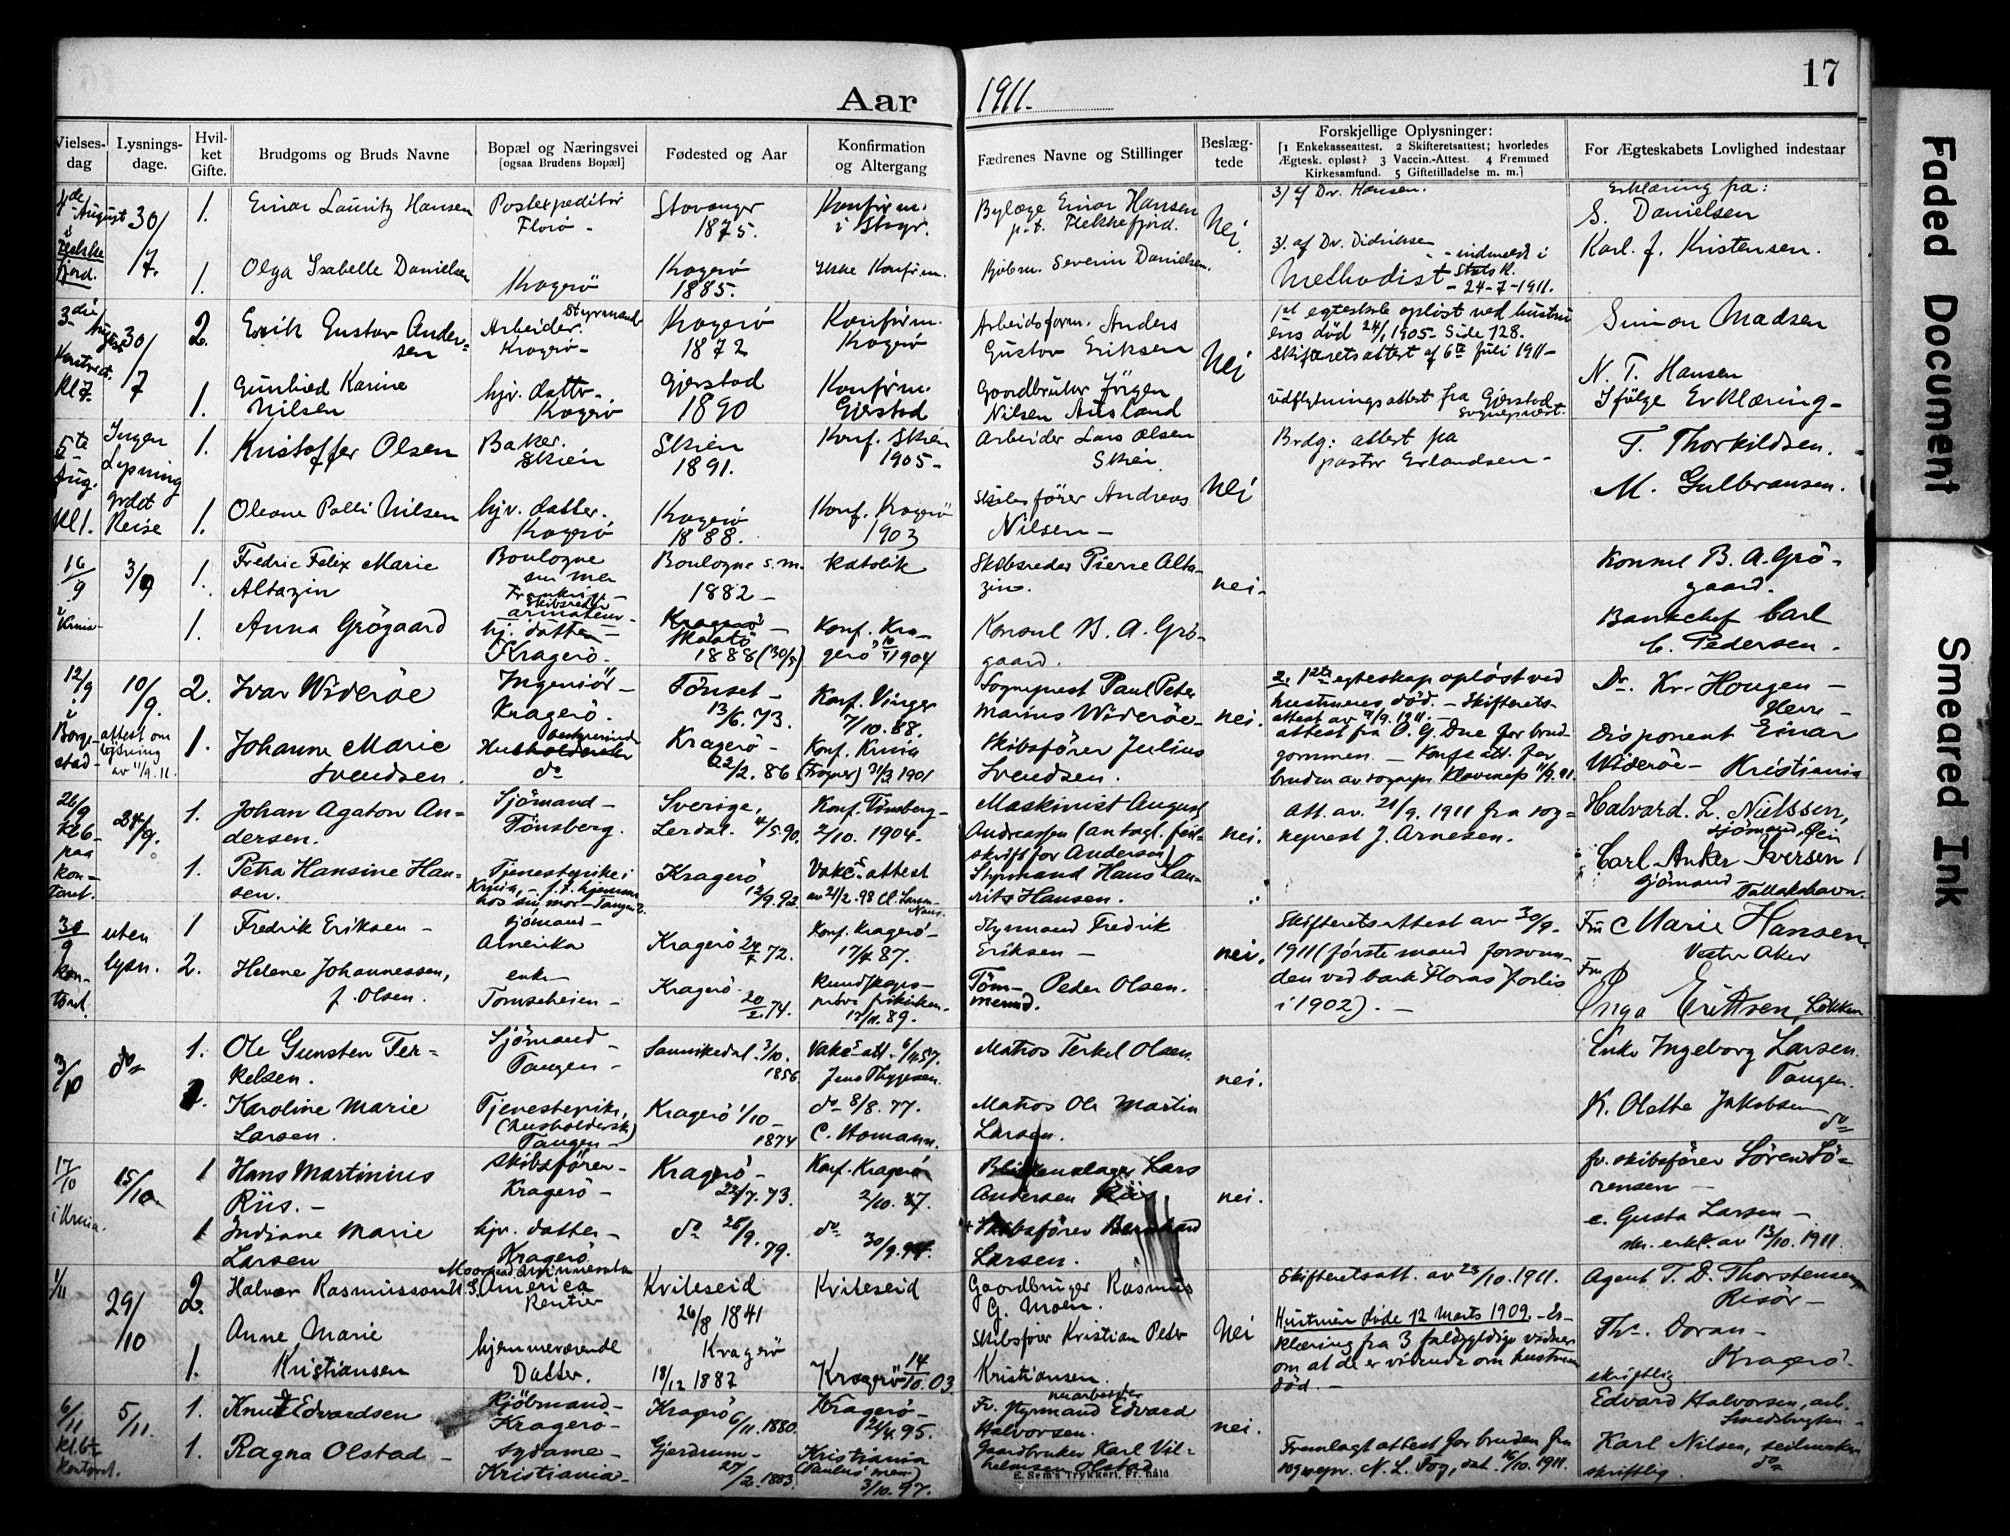 Aar 1911.
17
Vielses-dag
Lysnings-dage.
Hvil-ket Gifte.
Brudgoms og Bruds Navne
Bopæl og Næringsvei
[ogsaa Brudens Bopæl]
Fødested og Aar
Konfirmation og Altergang
Fædrenes Navne og Stillinger
Beslæg-tede
Forskjellige Oplysninger:
[1 Enkekasseattest. 2 Skifteretsattest; hvorledes
Ægtesk. opløst? 3 Vaccin.-Attest. 4 Fremmed
Kirkesamfund. 5 Giftetilladelse m. m.]
For Ægteskabets Lovlighed indestaar
August
30/7.
1. Einar Lauritz Hansen
Postexpeditør
Florø -
Stavanger
1875.
Konfirm.
Einar Hansen
p.t. Flekkefjord.
Nei
3) af Dr. Hansen.
Erklæring fra:
S. Danielsen
Karl. J. Kristensen.
1. Olga Isabelle Danielsen
Kragerö
Kragerö
1885.
Ikke Konfirm.
Kjöbm. Severin Danielsen.
3) af Dr. Didriksen
Methodist - indmeldt i
Stats K.
- 24-7-1911.
30/7
2. Erik Gustav Ander-
sen
Styrmand
Arbeider.
Kragerö -
Kragerö
1872
Konfirm.
Kragerö
Arbeidsform. Anders
Gustav Eriksen
Nei
1st egteskab opløst ved hustru
ens død 24/1 1905 - Side 128.
Skifteretsattest af 6te Juli 1911 -
Simon Madsen
Kl 7.
1. Gunhild Karine
Nilsen
hjv. datter -
Kragerö
Gjerstad
1890
Konfirm.
Gjerstad
Gaardbruker Jörgen
Nilsen Ausland
udflytningsattest fra Gjerstad
Sognepræst.
N. T. Hansen
Ifölge Erklæring -
5te Aug.
Kl 1.
Ingen
Lysning
grdet
Reise
1. Kristoffer Olsen
Baker.
Skien
Skien
1891.
Konf. Skien
1905 -
Arbeider Lars Olsen
Skien
Nei
Brdg: attest fra
pastor Erlandsen -
T. Thorkildsen.
M. Gulbransen.
1. Oleane Palli Nilsen
hjv. datter.
Kragerö
Kragerö
1888.
Konf. Kragerö
1903
Skibsförer Andreas
Nilsen -
16/9
3/9
1. Fredric Felix Marie
Altazin
Boulogne
sur mer
Frankrige -
Skibsreder
Boulogne s. m.
1882 -
Katolik
Skibsreder Pierre Alta-
zin.
nei.
Konsul B. A. Grö-
gaard.
1. Anna Grögaard
hj. datter -
Kragerö.
Kragerö -
Skaatö
1888 (30/5)
Konf. Kra-
gerö 1904
Konsul B. A. Grö-
gaard.
Bankchef Carl
C. Pedersen.
12/9
i Borge-
stad -
10/9.
attest om
lysning
av 11/9. 11.
2. Ivar Wideröe
Ingeniör -
Kragerö.
Tönset -
13/6. 73.
Konf. Vinger
7/10. 88.
Sogneprest Paul Peter
Marius Wideröe -
nei.
2. 1ste egteskap opløst ved
hustrues död. - Skifterets-
attest av 9/9. 1911. -
attest fra O. G. Due for brud-
gommen. - Konfs att. for
bruden av sogнepr. Klavenes 11/9. 11.
Dr. Kr. Hougen -
Disponent Einar
Wideröe - Kristiania
1. Johanne Marie
Svendsen.
bestyrerinde
do
Kragerö -
22/2. 86
Konf. Krnia
(Frogner) 31/3 1901
Skibsförer Julius
Svendsen.
26/9
Kl 6
paa
kon-
toret.
24/9.
1. Johan Agaton An-
dersen.
Sjömand -
Tönsberg.
Sverige,
Lerdal. 4/5. 90.
Konf. Tönsberg -
2/10. 1904.
Maskinist August
Andreassen (antagl. feil-
skrift for Andersen)
nei.
Att. av. 21/9. 1911 fra sog-
neprest J. Arnesen.
Halvard. L. Nielssen,
sjömand, Öen
1. Petra Hansine Han-
sen.
Tjenestepike i
Krnia, - f.t. hjemme
hos sin mor - Tangen.
Kragerö
12/9. 92
Vakcs attest
av 21/2. 98 Cl. Larsen
Styrmand Hans Lau-
rits Hansen.
Carl Anker Iversen
sjömand -
30/9
kon-
toret.
uten
lysn.
1 Fredrik Eriksen -
sjömand -
Amerika
Kragerö 24/4. 72.
Konf. Kragerö -
17/4 87.
Styrmand Fredrik
Eriksen -
nei.
Skifteretsattest av 30/9.
1911 (förste mand forsvun-
den ved bark "Floras" forlis
i 1902). -
Fru Marie Hansen
Vestre Aker
2. Helene Johannessen,
f. Olsen.
enke
Tomteheien -
Kragerö.
20/2. 74.
Kundskaps-
prövet i kirken.
17/11. 89.
Töm-
mermd. Peder Olsen.
Fru
Inga Eriksen, Lökken
3/10
do
1. Ole Gunsten Ter-
kelsen.
Sjömand -
Tangen -
Sannikedal. 3/10.
1856
Vakcs att. 6/11 57.
Jens Thygesen.
Matros Terkel Olsen.
nei.
Enke Ingeborg Larsen.
Tangen.
2. Karoline Marie
Larsen.
Tjenestepike,
(husholdersk)
Tangen -
Kragerö 1/10 -
1874
do 8/8. 77.
C. Homann.
Matros Ole Martin
Larsen.
K. Olette Jakobsen
do
17/10
i Krnia.
15/10
1 Hans Martinius
Riis. -
Skibsförer -
Kragerö -
Kragerö -
22/7. 73.
Konf. Kragerö
2/10. 87.
Blikkenslager Lars
Andersen Riis
nei.
fv. skibsförer Sören Sö-
rensen -
1 Indiane Marie
Larsen
hjv. datter -
Kragerö
do 26/9. 79.
do 30/9. 94.
Skibsförer Bernhard
Larsen.
e. Gusta Larsen -
skr. erkl. av 13/10. 1911.
1/11
29/10
2. Halvor Rasmussen
Moorhead Minnesota
U S. America
Rentier
Kviteseid
26/8 1841
Kviteseid
Gaardbruger Rasmus
G. Moen.
Nei
Skifteretsatt. av 23/10. 1911.
Hustruen döde 12 Marts 1909. - Er-
klæring fra 3 fuldgyldige vidner
om at de er vidende om hustruens
död. -
Agent T. D. Thorstensen
Risör -
1. Anne Marie
Kristiansen
hjemmeværende
Datter.
Kragerö
18/12 1887
Kragerö 14/10. 03.
Skibsförer Kristian Peder
Kristiansen.
Ths. Doran -
Kragerö.
skriftlig
6/11
kontoret.
5/11.
1. Knut Edvardsen
Kjöbmand -
Kragerö -
Kragerö
6/11. 1880.
Kragerö -
21/4. 95.
Fv. styrmand Edvard
Halvorsen.
nei.
Edvard Halvorsen, arb.
Smedsbugten -
1. Ragna Olstad -
sydame -
Kristiania -
Gjerdrum -
27/2. 1883.
Kristiania
(Paulus men)
3/10. 97.
Gaardbruker Karl Vil-
helmsen Olstad
Fremlagt attest for bruden fra
sognepr. N. L. Fog, dat. 16/10. 1911.
Karl Nilsen, seilmaker
do
skriftlig.
E. Sem's Trykkeri, Fr. hald
Faded Document
Smeared Ink